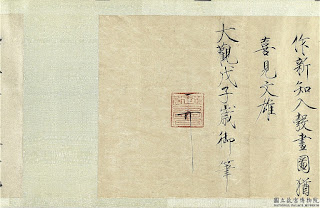 作新知入彀畫圖猶
喜見文雄
大觀戊子歲御筆
國立故宮博物院
NATIONAL PALACE MUSEUM